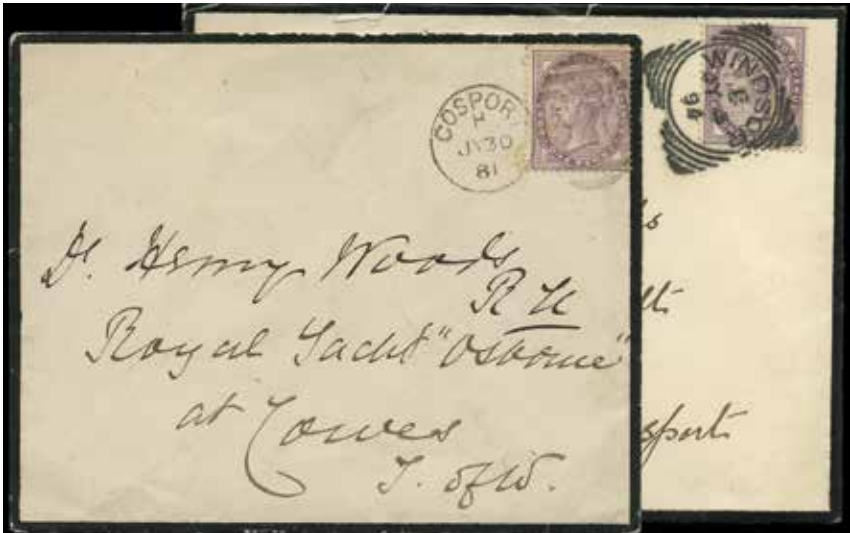 GOSPOR
H
JY 30
81
WINDSO
94
Dr. Henry Woods
R N
Royal Yacht "Osborne"
at Cowes
I. of W.
ds
lts
sports